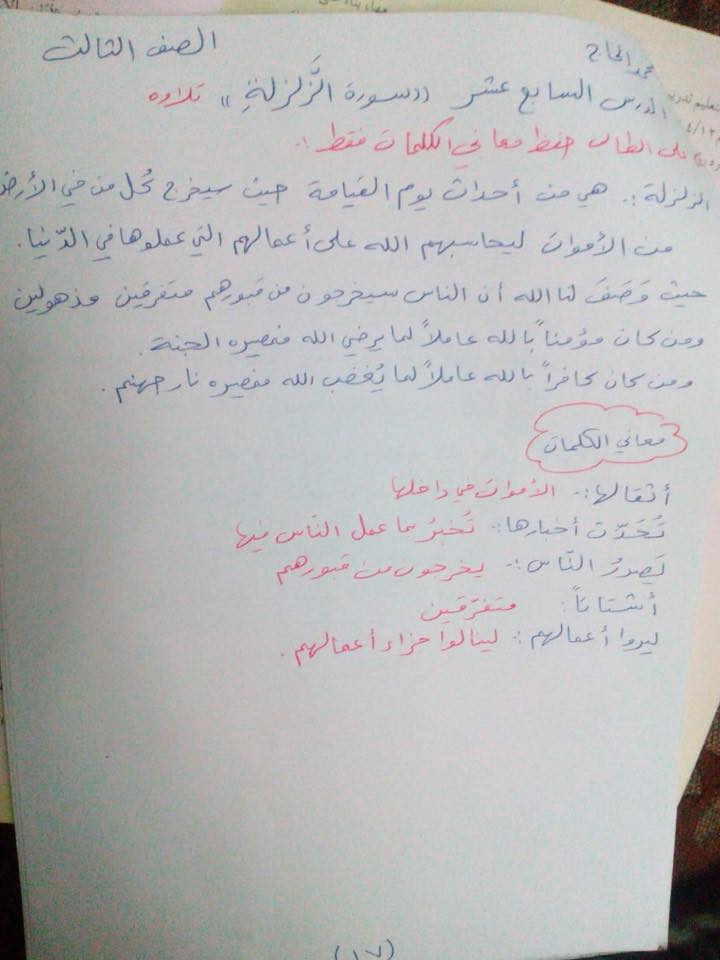 محمد الحاج
الصف الثالث
الدرس السابع عشر ((سورة الزَّلزلةِ)) تلاوه
على الطالب حفظ معاني الكلمات فقط :.
الزلزلة :. هي من أحداث يوم القيامة حيث سيخرج كُل من في الأرض
من الأموات ليحاسبهم الله على أعمالهم التي عملوها في الدّنيا.
حيث وَصَفَ لنا الله أن الناس سيخرجون من قبورهم متفرقين مذهولين
ومن كان مؤمناً بالله عاملاً لما يرضي الله فمصيره الجنة.
ومن كان كافراً بالله عاملاً لما يُغضب الله فمصيره نار جهنم.
معاني الكلمات
أثقالها :- الأموات في داخلها
تُحَدّث أخبارها :- تُخبرُ بما عمل النّاس فيها
يَصدرُ النّاس :- يخرجون من قبورهم
أشتاتاً : متفرّقين
ليروا أعمالهم :- لينالوا جزاء أعمالهم.
(١٧)